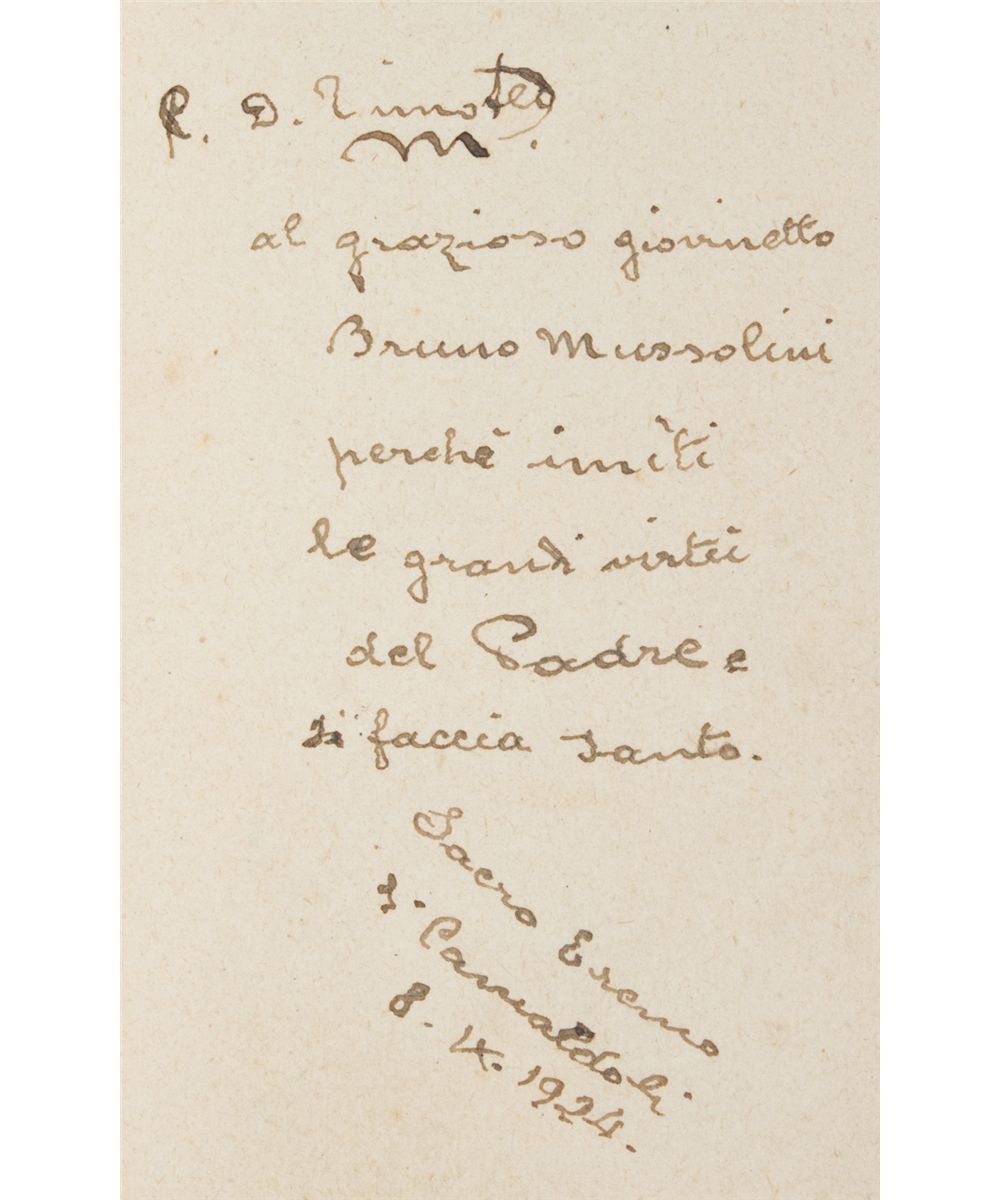 R. D. Timoteo
M.
al grazioso giovinetto
Bruno Mussolini
perchè imiti
le grandi virtù
del Padre e
si faccia santo.
Sacro Eremo
S. Camaldoli
8. IX. 1924.